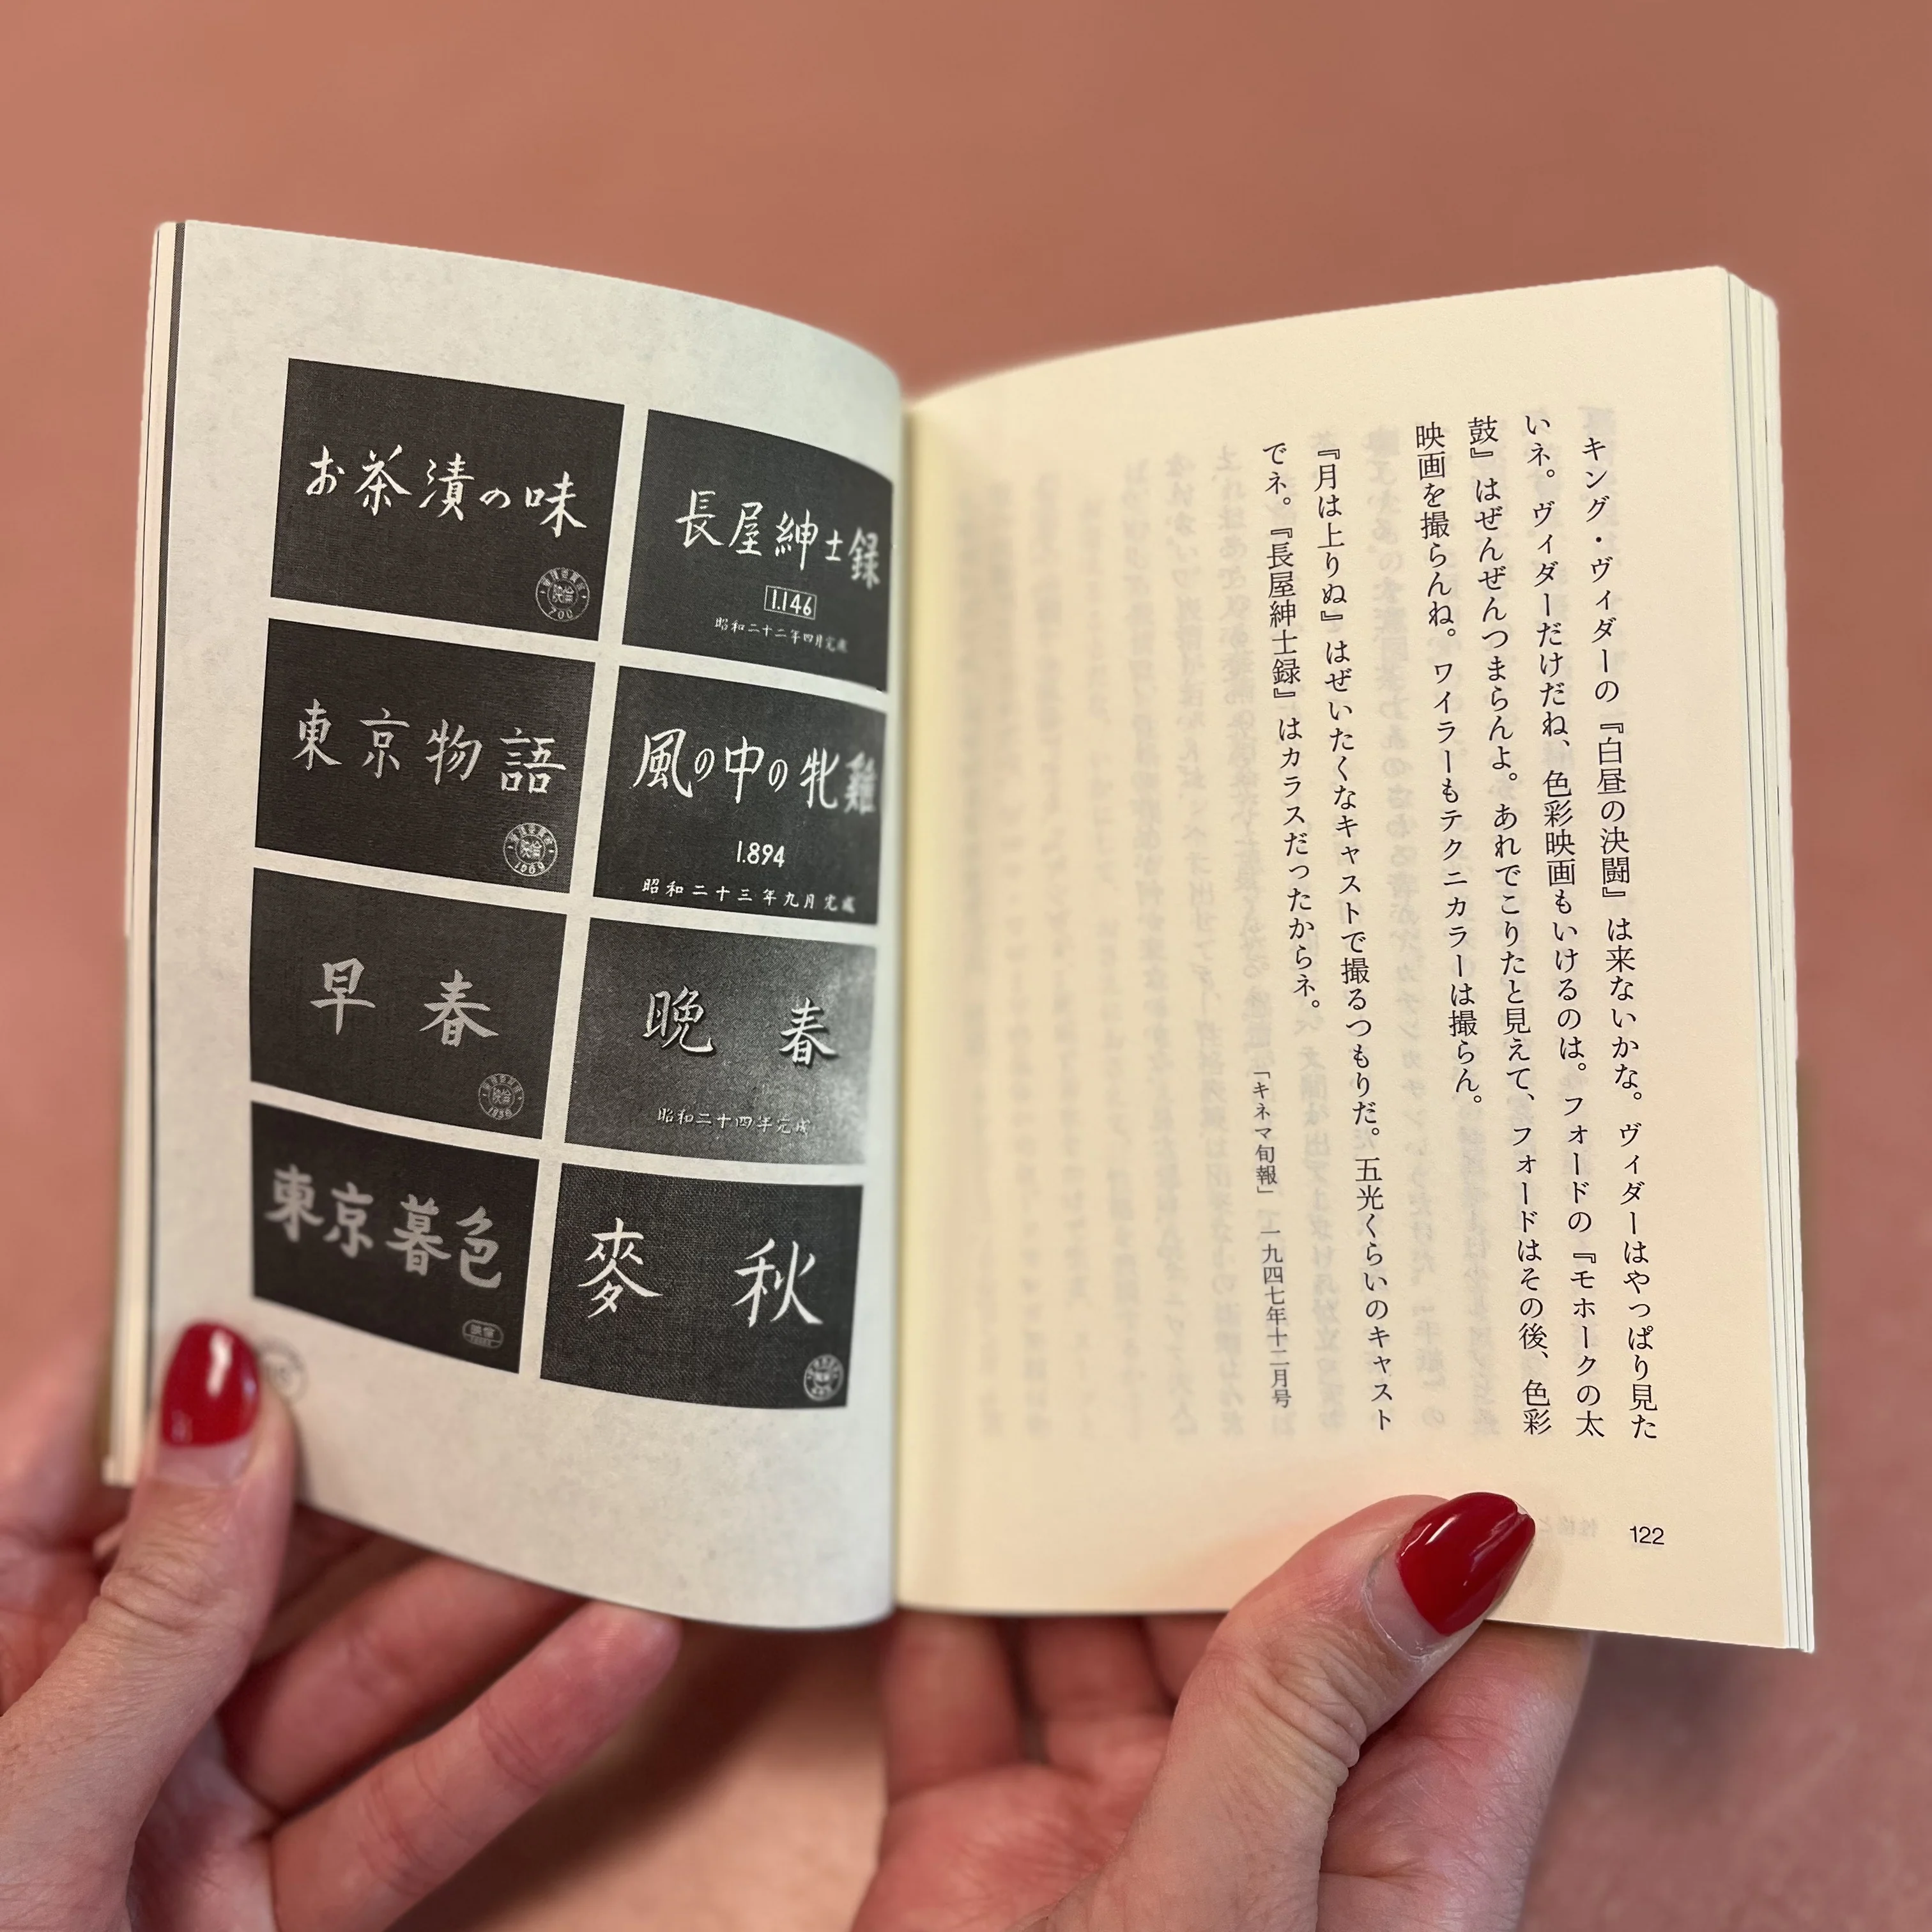 キング・ヴィダーの『白昼の決闘』は来ないかな。ヴィダーはやっぱり見た
いネ。ヴィダーだけだね、色彩映画もいけるのは。フォードの『モホークの太
鼓』はぜんぜんつまらんよ。あれでこりたと見えて、フォードはその後、色彩
映画を撮らんね。ワイラーもテクニカラーは撮らん。
『月は上りぬ』はぜいたくなキャストで撮るつもりだ。五光くらいのキャスト
でネ。『長屋紳士録』はカラスだったからネ。
「キネマ旬報」 一九四七年十二月号
122
長屋紳士録
1.146
昭和二十二年四月完成
風の中の牝雞
1.894
昭和二十三年九月完成
晩春
昭和二十四年完成
麥秋
お茶漬の味
映倫
700
東京物語
映倫
1000
早春
映倫
東京暮色
映倫